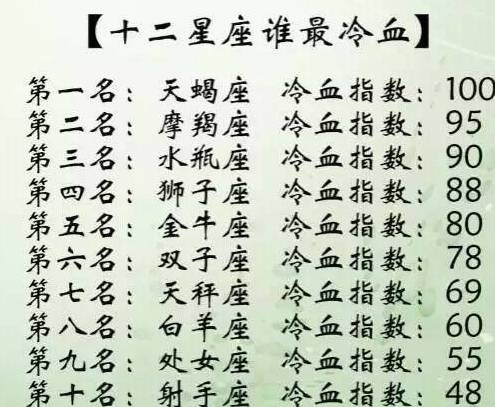 【十二星座谁最冷血】
第一名：天蝎座 冷血指数：100
第二名：摩羯座 冷血指数：95
第三名：水瓶座 冷血指数：90
第四名：狮子座 冷血指数：88
第五名：金牛座 冷血指数：80
第六名：双子座 冷血指数：78
第七名：天秤座 冷血指数：69
第八名：白羊座 冷血指数：60
第九名：处女座 冷血指数：55
第十名：射手座 冷血指数：48